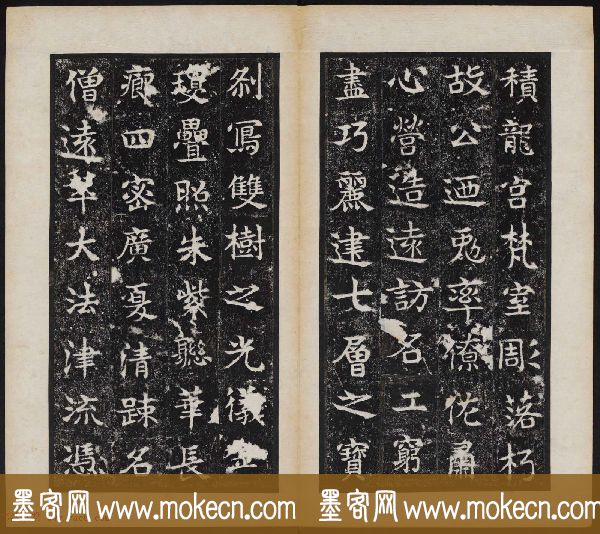 積龍宮梵室彫落朽
故公迺兎率僚佐肅
心營造遠訪名工窮
盡巧麗建七層之寶
剎寫雙樹之光儀
瓊疊照朱紫聮華長
廊四密廣夏清踈名
僧遠萃大法津流馮
墨客网 www.mokecn.com 墨客网 www.mokecn.com